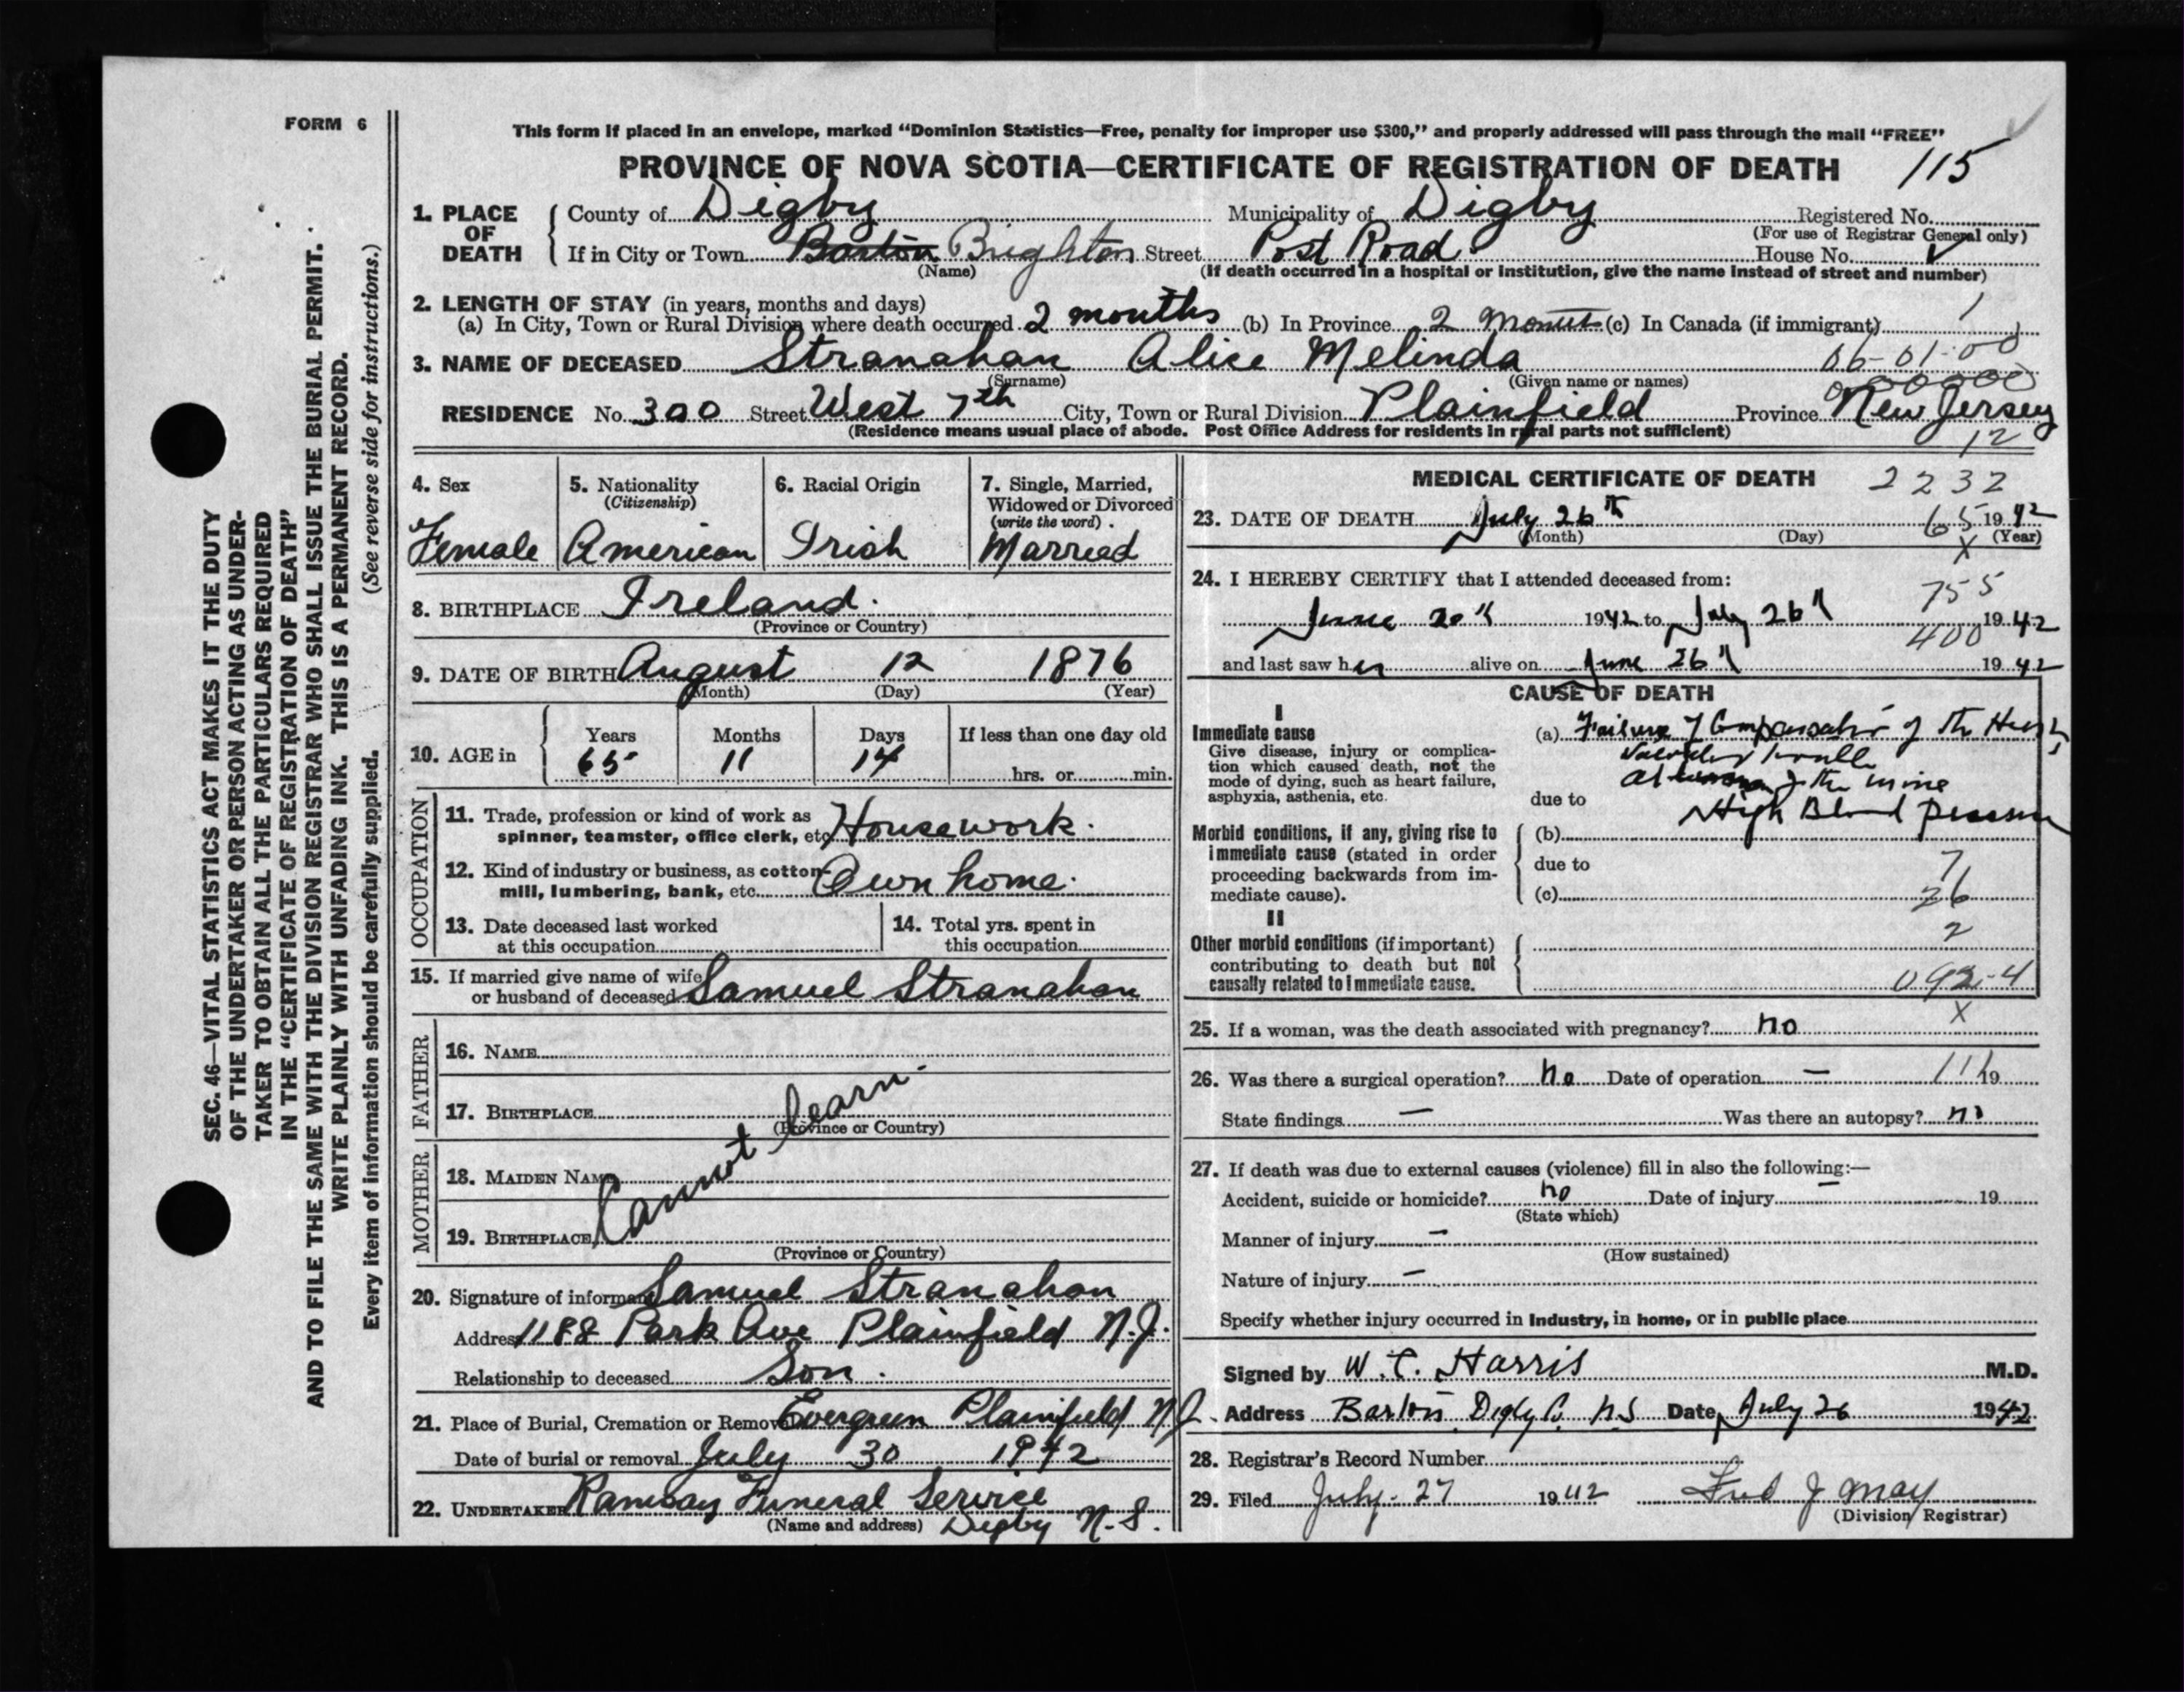 FORM 6
This form if placed in an envelope, marked “Dominion Statistics—Free, penalty for improper use $300,” and properly addressed will pass through the mail “FREE”
PROVINCE OF NOVA SCOTIA—CERTIFICATE OF REGISTRATION OF DEATH 115
1. PLACE OF DEATH
County of Digby Municipality of Digby Registered No.
(For use of Registrar General only)
If in City or Town Barton Brighton Street Post Road House No.
(Name)
(If death occurred in a hospital or institution, give the name instead of street and number)
2. LENGTH OF STAY (in years, months and days)
(a) In City, Town or Rural Division where death occurred 2 months (b) In Province 2 months (c) In Canada (if immigrant)
1
3. NAME OF DECEASED Stranahan Alice Melinda 06-01-00
(Surname) (Given name or names)
RESIDENCE No. 300 Street West 7th City, Town or Rural Division Plainfield Province New Jersey
(Residence means usual place of abode. Post Office Address for residents in rural parts not sufficient)
12
4. Sex
Female
5. Nationality
(Citizenship)
American
6. Racial Origin
Irish
7. Single, Married,
Widowed or Divorced
(write the word)
Married
8. BIRTHPLACE Ireland.
(Province or Country)
9. DATE OF BIRTH August 12 1876
(Month) (Day) (Year)
10. AGE in
Years Months Days If less than one day old
65 11 14 hrs. or min.
OCCUPATION
11. Trade, profession or kind of work as
spinner, teamster, office clerk, etc. Housework.
12. Kind of industry or business, as cotton
mill, lumbering, bank, etc. Own home.
13. Date deceased last worked
at this occupation
14. Total yrs. spent in
this occupation
15. If married give name of wife
or husband of deceased Samuel Stranahan
FATHER
16. NAME
17. BIRTHPLACE
(Province or Country)
MOTHER
18. MAIDEN NAME
19. BIRTHPLACE
(Province or Country)
Cannot learn.
20. Signature of informant Samuel Stranahan
Address 1188 Park Ave Plainfield N.J.
Relationship to deceased Son.
21. Place of Burial, Cremation or Removal Evergreen Plainfield N.J.
Date of burial or removal July 30 1942
22. UNDERTAKER Ramsay Funeral Service
(Name and address) Digby N.S.
MEDICAL CERTIFICATE OF DEATH 2232
23. DATE OF DEATH July 26th 65 1942
(Month) (Day) (Year)
X
24. I HEREBY CERTIFY that I attended deceased from:
755
June 20th 1942 to July 26th 1942
400
and last saw her alive on June 26th 1942
CAUSE OF DEATH
I
Immediate cause
Give disease, injury or complica-
tion which caused death, not the
mode of dying, such as heart failure,
asphyxia, asthenia, etc.
(a) Failure of Compensation of the Heart
due to
High Blood pressure
Morbid conditions, if any, giving rise to
immediate cause (stated in order
proceeding backwards from im-
mediate cause).
(b)
due to
7
(c) 26
II
Other morbid conditions (if important)
contributing to death but not
causally related to immediate cause.
2
092-4
X
25. If a woman, was the death associated with pregnancy? no
26. Was there a surgical operation? no Date of operation — 19
State findings — Was there an autopsy? no
27. If death was due to external causes (violence) fill in also the following:—
Accident, suicide or homicide? no Date of injury — 19
(State which)
Manner of injury —
(How sustained)
Nature of injury —
Specify whether injury occurred in industry, in home, or in public place
Signed by W. C. Harris M.D.
Address Barton Digby Co. N.S Date July 26 1942
28. Registrar's Record Number
29. Filed July 27 1942 Fred J May
(Division Registrar)
SEC. 46—VITAL STATISTICS ACT MAKES IT THE DUTY
OF THE UNDERTAKER OR PERSON ACTING AS UNDER-
TAKER TO OBTAIN ALL THE PARTICULARS REQUIRED
IN THE “CERTIFICATE OF REGISTRATION OF DEATH”
AND TO FILE THE SAME WITH THE DIVISION REGISTRAR WHO SHALL ISSUE THE BURIAL PERMIT.
WRITE PLAINLY WITH UNFADING INK. THIS IS A PERMANENT RECORD.
Every item of information should be carefully supplied. (See reverse side for instructions.)